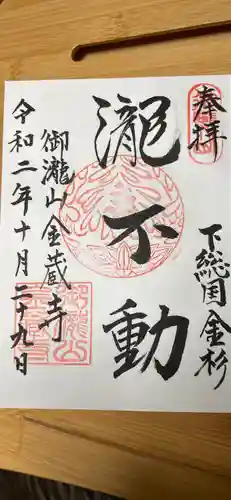 奉拝
下総国金杉
瀧不動
御瀧山金蔵寺
令和二年十月二十九日